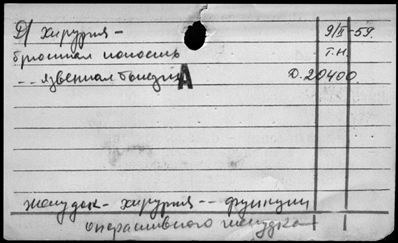 Д/ хирургия – 9/II-59.
брюшная полость т.н.
-- язвенная болезнь А D. 20400.
желудок – хирургия -- функции
оперативного желудка